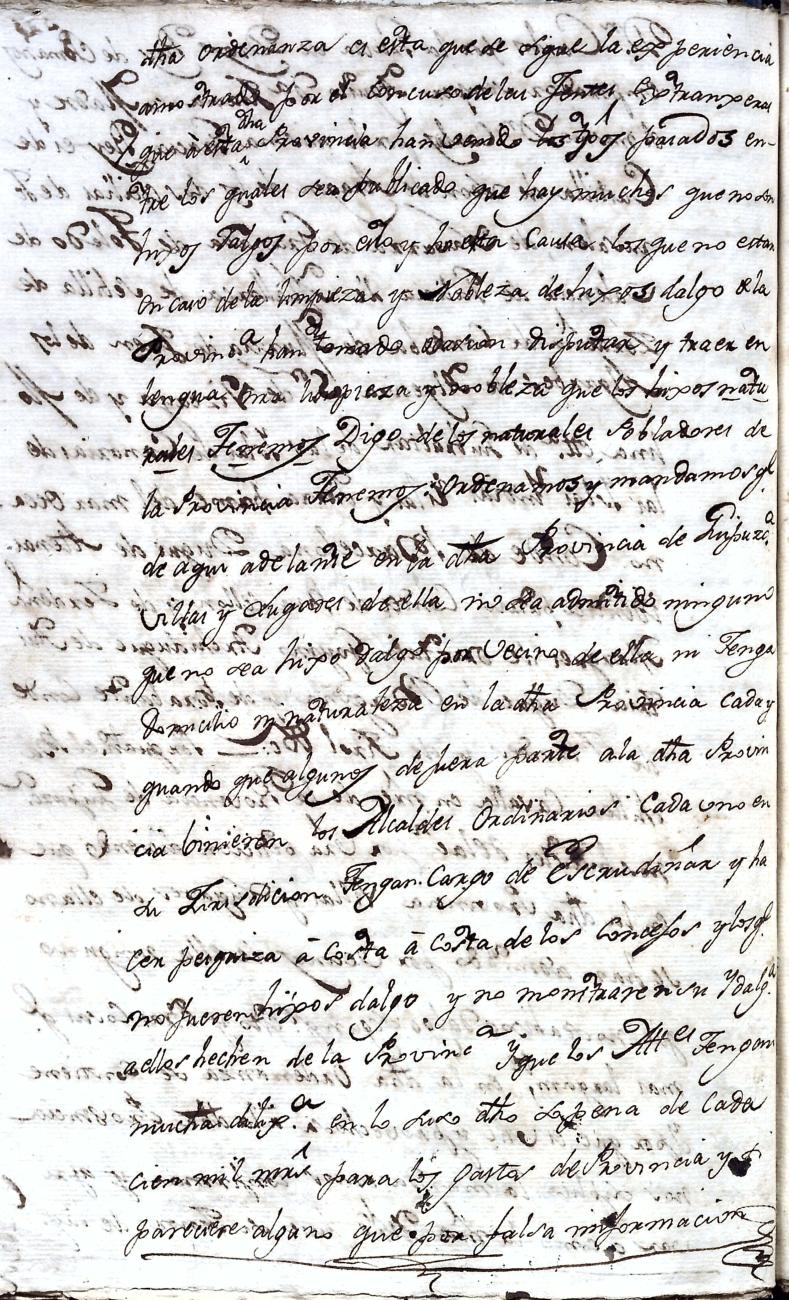 dha ordenanza es esta que se sigue la experiencia
amostrado por el Concurso de las Jentes extranxeras
que à esta dha Provincia han venido los tpos pasados en-
tre los quales sea publicado que hay muchos que no son
hixos Dalgos por esto y esta causa los que no estan
en caso de la limpieza y Nobleza de hixos dalgo de la
Provina han tomado disputar y traer en
lengua ntra limpieza y Nobleza que los hixos natu
rales Tenemos Digo de los naturales Pobladores de
la Provincia Tenemos Ordenamos y mandamos ql
de aqui adelante en la dha Provincia de Guipuzca
Villas y Lugares de ella no sea admitido ninguno
que no sea hixo Dalgo por Vecino de ella ni Tenga
Domicilio ni naturaleza en la dha Provincia cada y
quando que algunos de fuera parte a la dha Provin
cia binieren los Alcaldes Ordinarios Cada uno en
su Jurisdicion Tengan Cargo de Escrudiñar y ha
cer pesquiza à Costa à Costa de los Concejos y los ql
no fueren hixos dalgo y no mostraren su Ydalga
a ellos hechen de la Provinca y que los Alles Tengan
mucha diliga en lo suso dho so pena de Cada
cien mil mrs para los gastos de Provincia y si
pareciere alguno que por falsa informacion